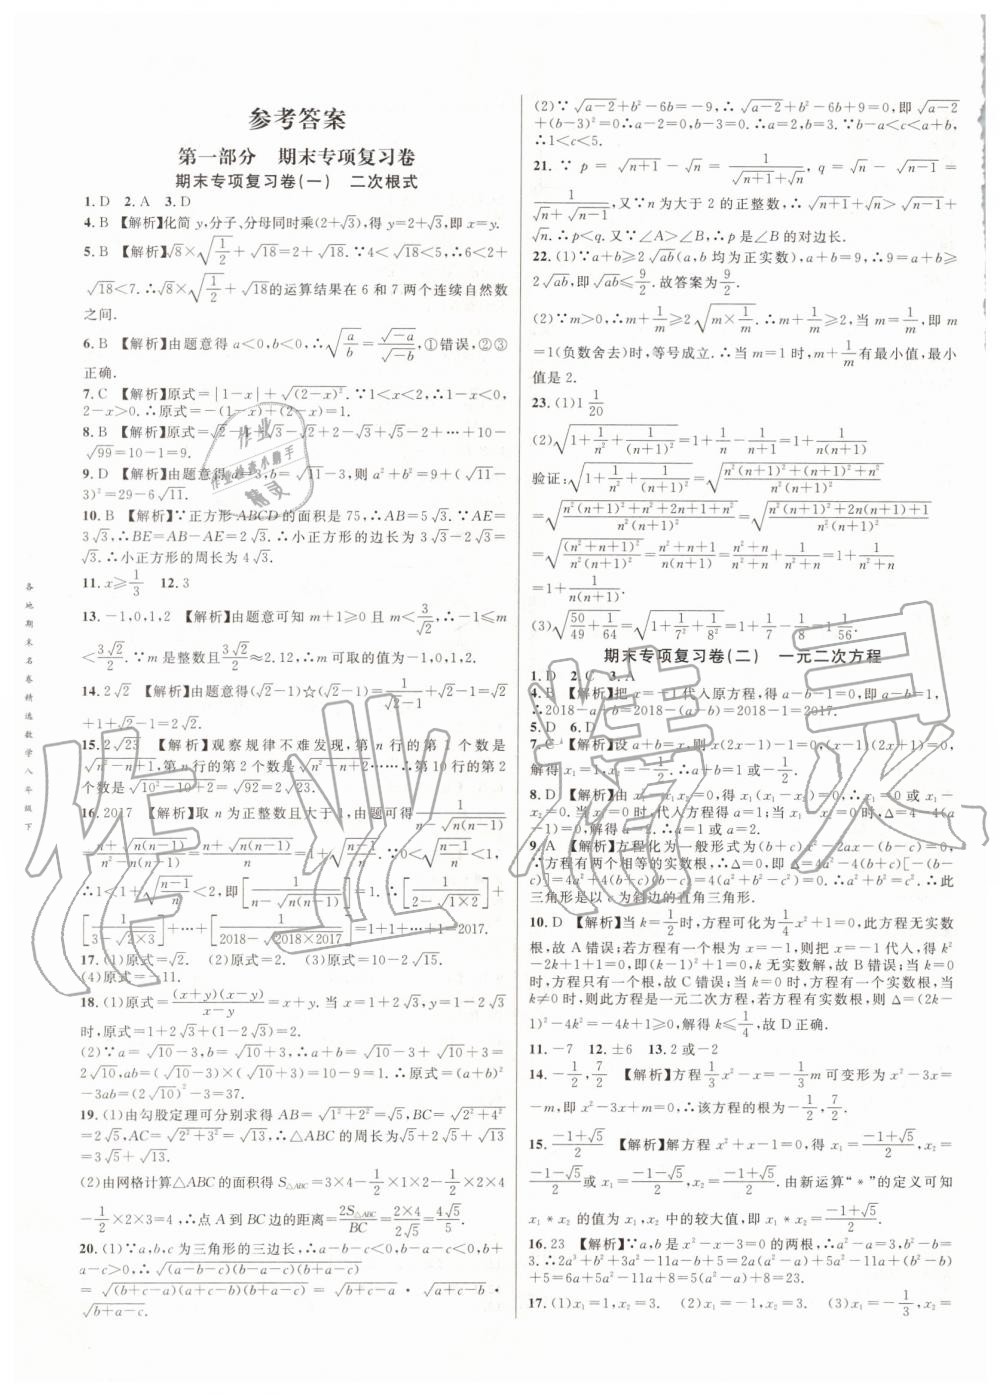 参考答案
第一部分 期末专项复习卷
期末专项复习卷(一) 二次根式
1. D 2. A 3. D
4. B 【解析】化简 y,分子、分母同时乘(2+√3),得 y=2+√3,即 x=y.
5. B 【解析】√8×√(1/2)+√18=2+√18. ∵4<√18<5,∴6<2+
√18<7. ∴√8×√(1/2)+√18的运算结果在 6 和 7 两个连续自然数
之间.
6. B 【解析】由题意得 a<0,b<0,∴√(a/b)=√(-a)/√(-b),①错误,②③
正确.
7. C 【解析】原式=|1-x|+√((2-x)²). ∵1<x<2,∴1-x<0,
2-x>0. ∴原式=-(1-x)+(2-x)=1.
8. B 【解析】原式=√2-1+√3-√2+2-√3+√5-2+…+10-
√99=10-1=9.
9. D 【解析】由题意得 a=3,b=√11-3,则 a²+b²=9+(√11-
3)²=29-6√11.
10. B 【解析】∵正方形 ABCD 的面积是 75,∴AB=5√3. ∵AE=
3√3,∴BE=AB-AE=2√3. ∴小正方形的边长为 3√3-2√3=
√3. ∴小正方形的周长为 4√3.
11. x≥1/3 12. 3
13. -1,0,1,2 【解析】由题意可知 m+1≥0 且 m<3/√2,∴-1≤m
<3√2/2. ∵m 是整数,3√2/2≈2.12,∴m=-1,0,1,2.
14. 2√2 【解析】由题意得(√2-1)☆(√2+1)=1/(√2-1)+√2=√2
+1+√2-1=2√2.
15. 2√23 【解析】观察规律不难发现,第 n 行的第 1 个数是
√(n²-n+1),第 n 行的第 2 个数是√(n²-n+2)…∴第 10 行的第 2
个数是√(10²-10+2)=√92=2√23.
16. 2017 【解析】取 n 为正整数且大于 1,由题意得1/(n-√(n(n-1)))
=(n+√(n(n-1)))/(n²-n(n-1))=(n+√(n(n-1)))/n=1+√((n-1)/n). ∵0<√((n-1)/n)<1,
∴1<1+√((n-1)/n)<2,即[1/(n-√(n(n-1)))]=1. ∴[1/(2-√(1×2))]+
[1/(3-√(2×3))]+…+[1/(2018-√(2018×2017))]=1+1+…+1=2017.
17. (1)原式=√2. (2)原式=0. (3)原式=10-2√15.
(4)原式=-11.
18. (1)原式=(x+y)(x-y)/(x-y)=x+y. 当 x=1+2√3,y=1-2√3
时,原式=1+2√3+(1-2√3)=2.
(2)∵a=√10-3,b=√10+3,∴a+b=√10-3+√10+3=
2√10,ab=(√10-3)×(√10+3)=10-9=1. ∴原式=(a+b)²
-3ab=(2√10)²-3=37.
19. (1)由勾股定理可分别求得 AB=√(1²+2²)=√5,BC=√(2²+4²)=
2√5,AC=√(2²+3²)=√13,∴△ABC 的周长为√5+2√5+√13
=3√5+√13.
(2)由网格计算△ABC 的面积得 S△ABC=3×4-1/2×1×2-1/2×2×4
-1/2×2×3=4,∴点 A 到 BC 边的距离=2S△ABC/BC=2×4/(2√5)=4√5/5.
20. (1)∵a,b,c 为三角形的三边长,∴a-b-c<0,b-a-c<0,b+
a-c>0. ∴√((a-b-c)(b-a-c))÷√(b+a-c)
=√((b+c-a)(a+c-b)(b+a-c))=√(b+c-a)·√(a+c-b)·
√(b+a-c).
(2)∵√(a-2)+b²-6b=-9,∴√(a-2)+b²-6b+9=0,即√(a-2)
+(b-3)²=0∴a-2=0,b-3=0. ∴a=2,b=3. ∵b-a<c<a+b,
∴1<c<5.
21. ∵ p=√(n+1)-√n=1/(√(n+1)+√n), q=√n-√(n-1)=
1/(√n+√(n-1)),又∵n 为大于 2 的正整数,∴√(n+1)+√n>√(n-1)+
√n. ∴p<q. 又∵∠A>∠B,∴p 是∠B 的对边长.
22. (1)∵a+b≥2√ab(a,b 均为正实数),a+b=9,∴9=a+b≥
2√ab,即√ab≤9/2. 故答案为9/2.
(2)∵m>0,∴m+1/m≥2√(m×1/m). ∴m+1/m≥2,当 m=1/m,即 m
=1(负数舍去)时,等号成立. ∴当 m=1 时,m+1/m有最小值,最小
值是 2.
23. (1)1 1/20
(2)√(1+1/n²+1/(n+1)²)=1+1/n-1/(n+1)=1+1/(n(n+1))
验证:√(1+1/n²+1/(n+1)²)=√((n²(n+1)²+(n+1)²+n²)/(n²(n+1)²))
=√((n²(n+1)²+n²+2n+1+n²)/(n²(n+1)²))=√((n²(n+1)²+2n(n+1)+1)/(n²(n+1)²))
=√((n²+n+1)²/(n²(n+1)²))=(n(n+1)+1)/(n(n+1))=(n²+n+1)/(n²+n)=1+1/(n²+n)
=1+1/(n(n+1)).
(3)√(50/49+1/64)=√(1+1/7²+1/8²)=1+1/7-1/8=1 1/56.
期末专项复习卷(二) 一元二次方程
1. D 2. C 3. A
4. B 【解析】把 x=-1 代入原方程,得 a-b-1=0,即 a-b=1,
∴2018-a+b=2018-(a-b)=2018-1=2017.
5. D 6. D
7. C 【解析】设 a+b=x,则原方程为 x(2x-1)-1=0,(x-1)(2x+1)=0,
解得 x₁=1,x₂=-1/2. 则 a+b=1 或-1/2.
8. D 【解析】由 x₁²-x₁x₂=0,得 x₁(x₁-x₂)=0,∴x₁=0 或 x₁-
x₂=0. 当 x₁=0 时,代入方程得 a=1;当 x₁-x₂=0 时,Δ=4-4(a
-1)=0,解得 a=2. ∴a=1 或 a=2.
9. A 【解析】方程化为一般形式为(b+c)x²-2ax-(b-c)=0,
∵方程有两个相等的实数根,∴Δ=0,即 Δ=4a²-4(b+c)[-(b-
c)]=4a²+4(b+c)(b-c)=4(a²+b²-c²)=0. ∴a²+b²=c². ∴此
三角形是以 c 为斜边的直角三角形.
10. D 【解析】当 k=1/2时,方程可化为1/2x²+1=0,此方程无实数
根,故 A 错误;若方程有一个根为-1,则把 x=-1 代入,得 k²
-2k+1+1=0,即(k-1)²=-1,k 无实数解,故 B 错误;当 k=0
时,方程只有一个实数根,故 C 错误;当 k=0 时,方程有一个实数根,当
k≠0 时,则此方程是一元二次方程,若方程有实数根,则 Δ=(2k-
1)²-4k²=-4k+1≥0,解得 k≤1/4,故 D 正确.
11. -7 12. ±6 13. 2 或-2
14. -1/2,7/2 【解析】方程1/3x²-x=-1/3m 可变形为 x²-3x=
-m,即 x²-3x+m=0,∴该方程的根为-1/2,7/2.
15. (-1+√5)/2 【解析】解方程 x²+x-1=0,得 x₁=(-1+√5)/2,x₂=
(-1-√5)/2或 x₁=(-1-√5)/2,x₂=(-1+√5)/2. 由新运算“*”的定义可知
x₁*x₂ 的值为 x₁,x₂ 中的较大值,即 x₁*x₂=(-1+√5)/2.
16. 23 【解析】∵a,b 是 x²-x-3=0 的两根,∴a²-a=3,b²-b=
3. ∴2a³+b²+3a²-11a-b+5=2a(a²-a)+5a²+b²-b-11a
+5=6a+5a²-11a+8=5(a²-a)+8=23.
17. (1)x₁=x₂=3. (2)x₁=-1,x₂=3. (3)x₁=-1/3,x₂=
各地期末名卷精选数学八年级下
作业
作业检查小助手
精灵
作业精灵